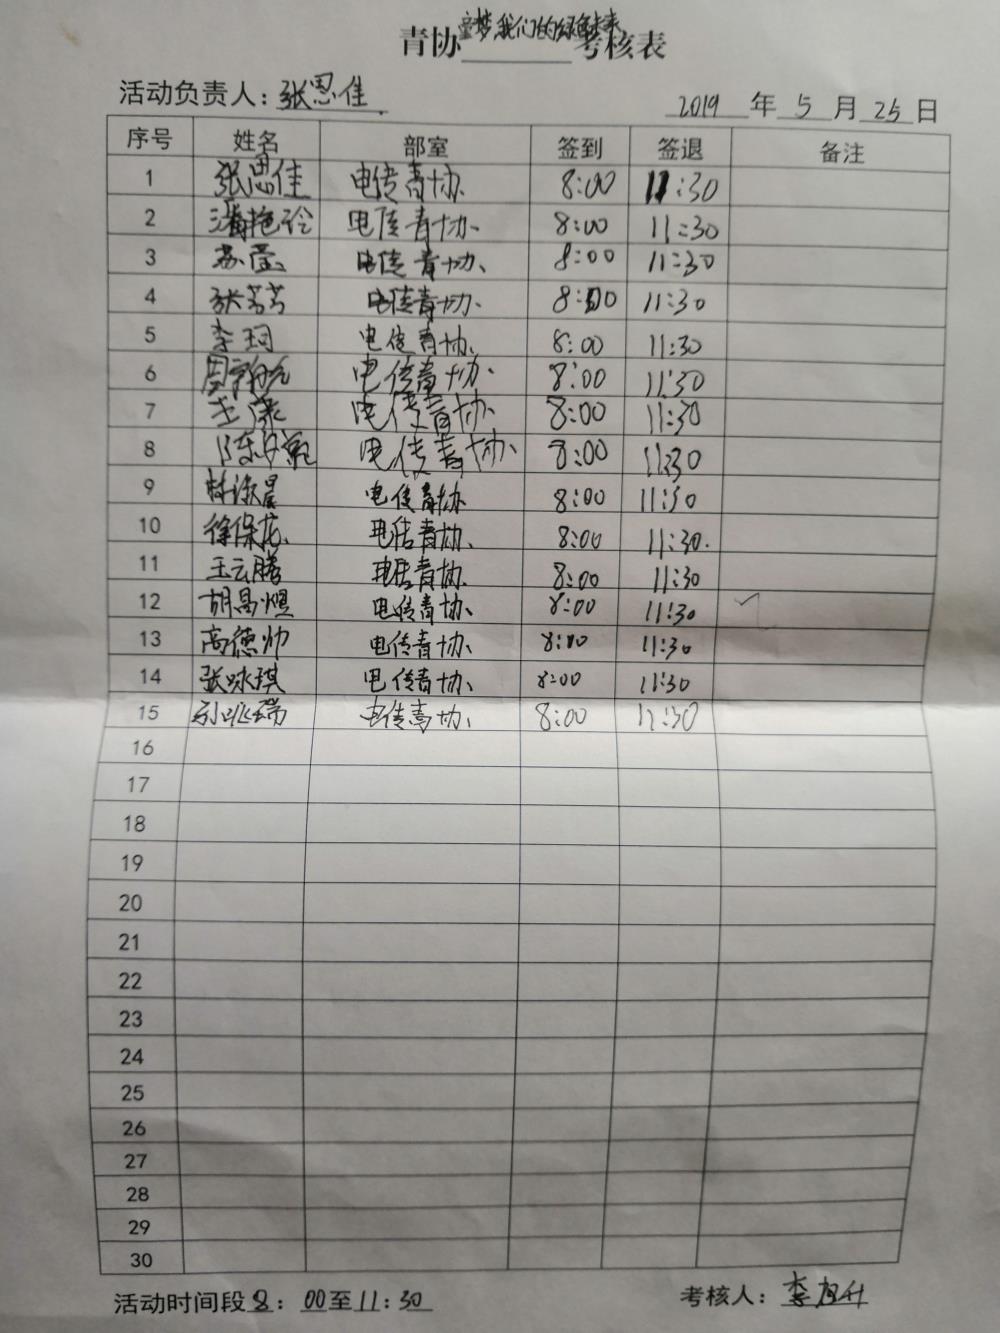 青协童梦我们的绿色未来考核表
活动负责人：张思佳 2019年5月25日
序号 姓名 部室 签到 签退 备注
1 张思佳 电传青协 8:00 11:30
2 潘艳玲 电传青协、 8:00 11:30
3 苏莹 电传青协、 8:00 11:30
4 张芳芳 电传青协、 8:00 11:30
5 李珂 电传青协、 8:00 11:30
6 电传青协、 8:00 11:30
7 电传青协、 8:00 11:30
8 电传青协、 8:00 11:30
9 电传青协 8:00 11:30
10 徐保龙、 电传青协、 8:00 11:30.
11 王云腾 电传青协、 8:00 11:30
12 胡昌焜 电传青协、 8:00 11:30
13 高德帅 电传青协、 8:00 11:30
14 张咏琪 电传青协、 8:00 11:30
15 电传青协、 8:00 11:30
16
17
18
19
20
21
22
23
24
25
26
27
28
29
30
活动时间段8：00至11：30 考核人：李旭升